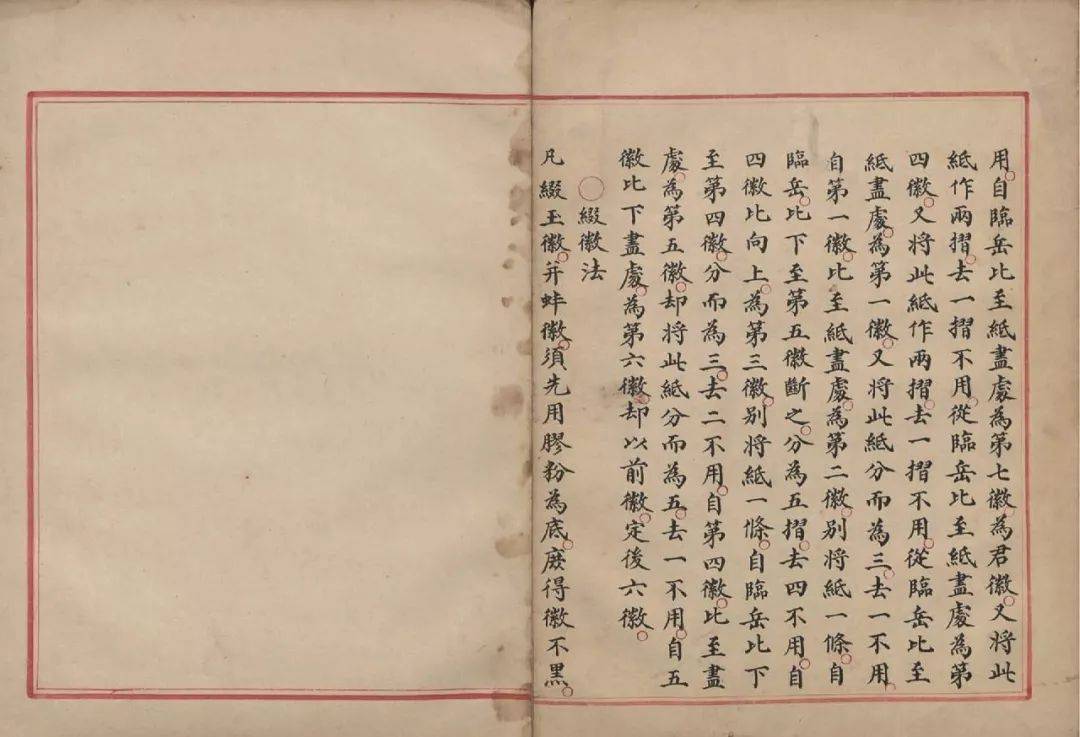 用。自臨岳比至紙盡處為第七徽。為君徽。又將此
紙作兩摺。去一摺不用。從臨岳比至紙盡處為第
四徽。又將此紙作兩摺。去一摺不用。從臨岳比至
紙盡處。為第一徽。又將此紙分而為三。去一不用。
自第一徽。比至紙盡處。為第二徽。別將紙一條。自
臨岳。比下至第五徽斷之。分為五摺。去四不用。自
四徽比向上。為第三徽。別將紙一條。自臨岳比下
至第四徽。分而為三。去二不用。自第四徽。比至盡
處。為第五徽。却將此紙分而為五。去一不用。自五
徽比下盡處。為第六徽。却以前徽。定後六徽。
○綴徽法
凡綴玉徽。并蚌徽。須先用膠粉為底。庶得徽不黑。